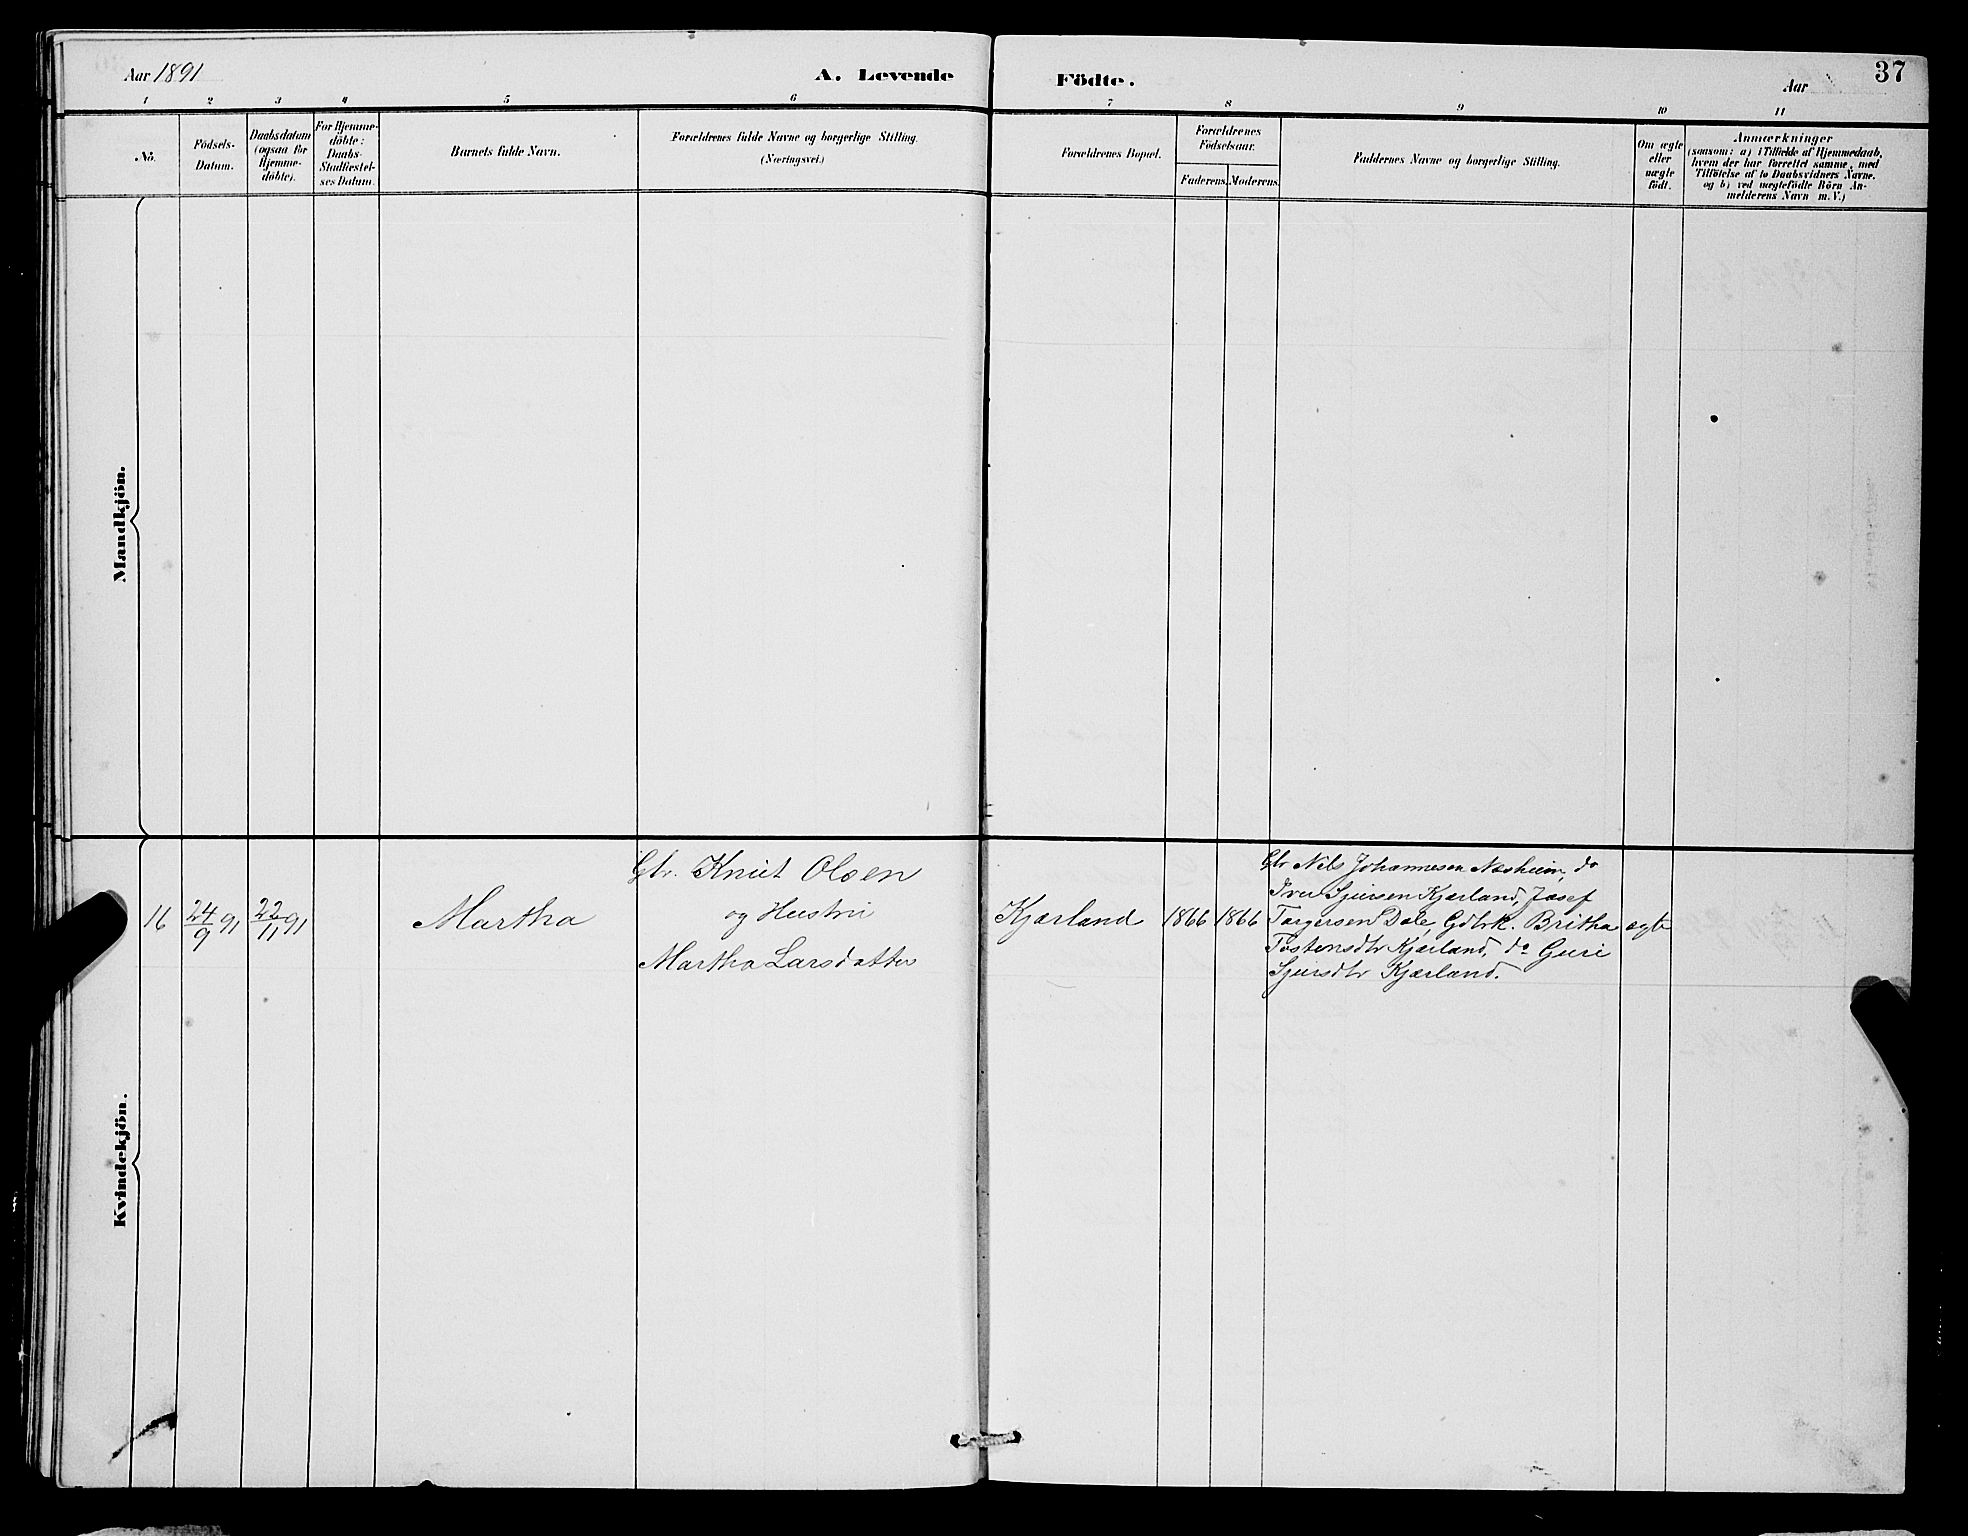 Aar 1891
A. Levende
Födte.
Aar
37
1 2 3 4 5 6 7 8 9 10 11
No.
Födsels-
Datum.
Daabsdatum
(ogsaa for
Hjemme-
döbte).
For Hjemme-
döbte:
Daabs-
Stadfæstel-
ses Datum.
Barnets fulde Navn.
Forældrenes fulde Navne og borgerlige Stilling.
(Næringsvei.)
Forældrenes Bopæl.
Forældrenes
Födselsaar.
Faderens. Moderens.
Faddernes Navne og borgerlige Stilling.
Om ægte
eller
uægte
födt.
Anmærkninger
(saasom: a) i Tilfælde af Hjemmedaab,
hvem der har forrettet samme, med
Tilföielse af to Daabsvidners Navne.
og b) ved uægtefödte Börn An-
melderens Navn m. V.)
Mandkjön.
Kvindekjön.
16
24/9 91
22/11 91
Martha
Gbr. Knut Olsen
og Hustru
Martha Larsdatter
Kjærland
1866
1866
Gbr Nils Johannesen Næsheim, do
Iver Sjursen Kjærland, Josef
Torgersen Dale, Gdbrk. Britha
Tostensdtr Kjærland, do Guri
Sjursdtr Kjærland.
ægte